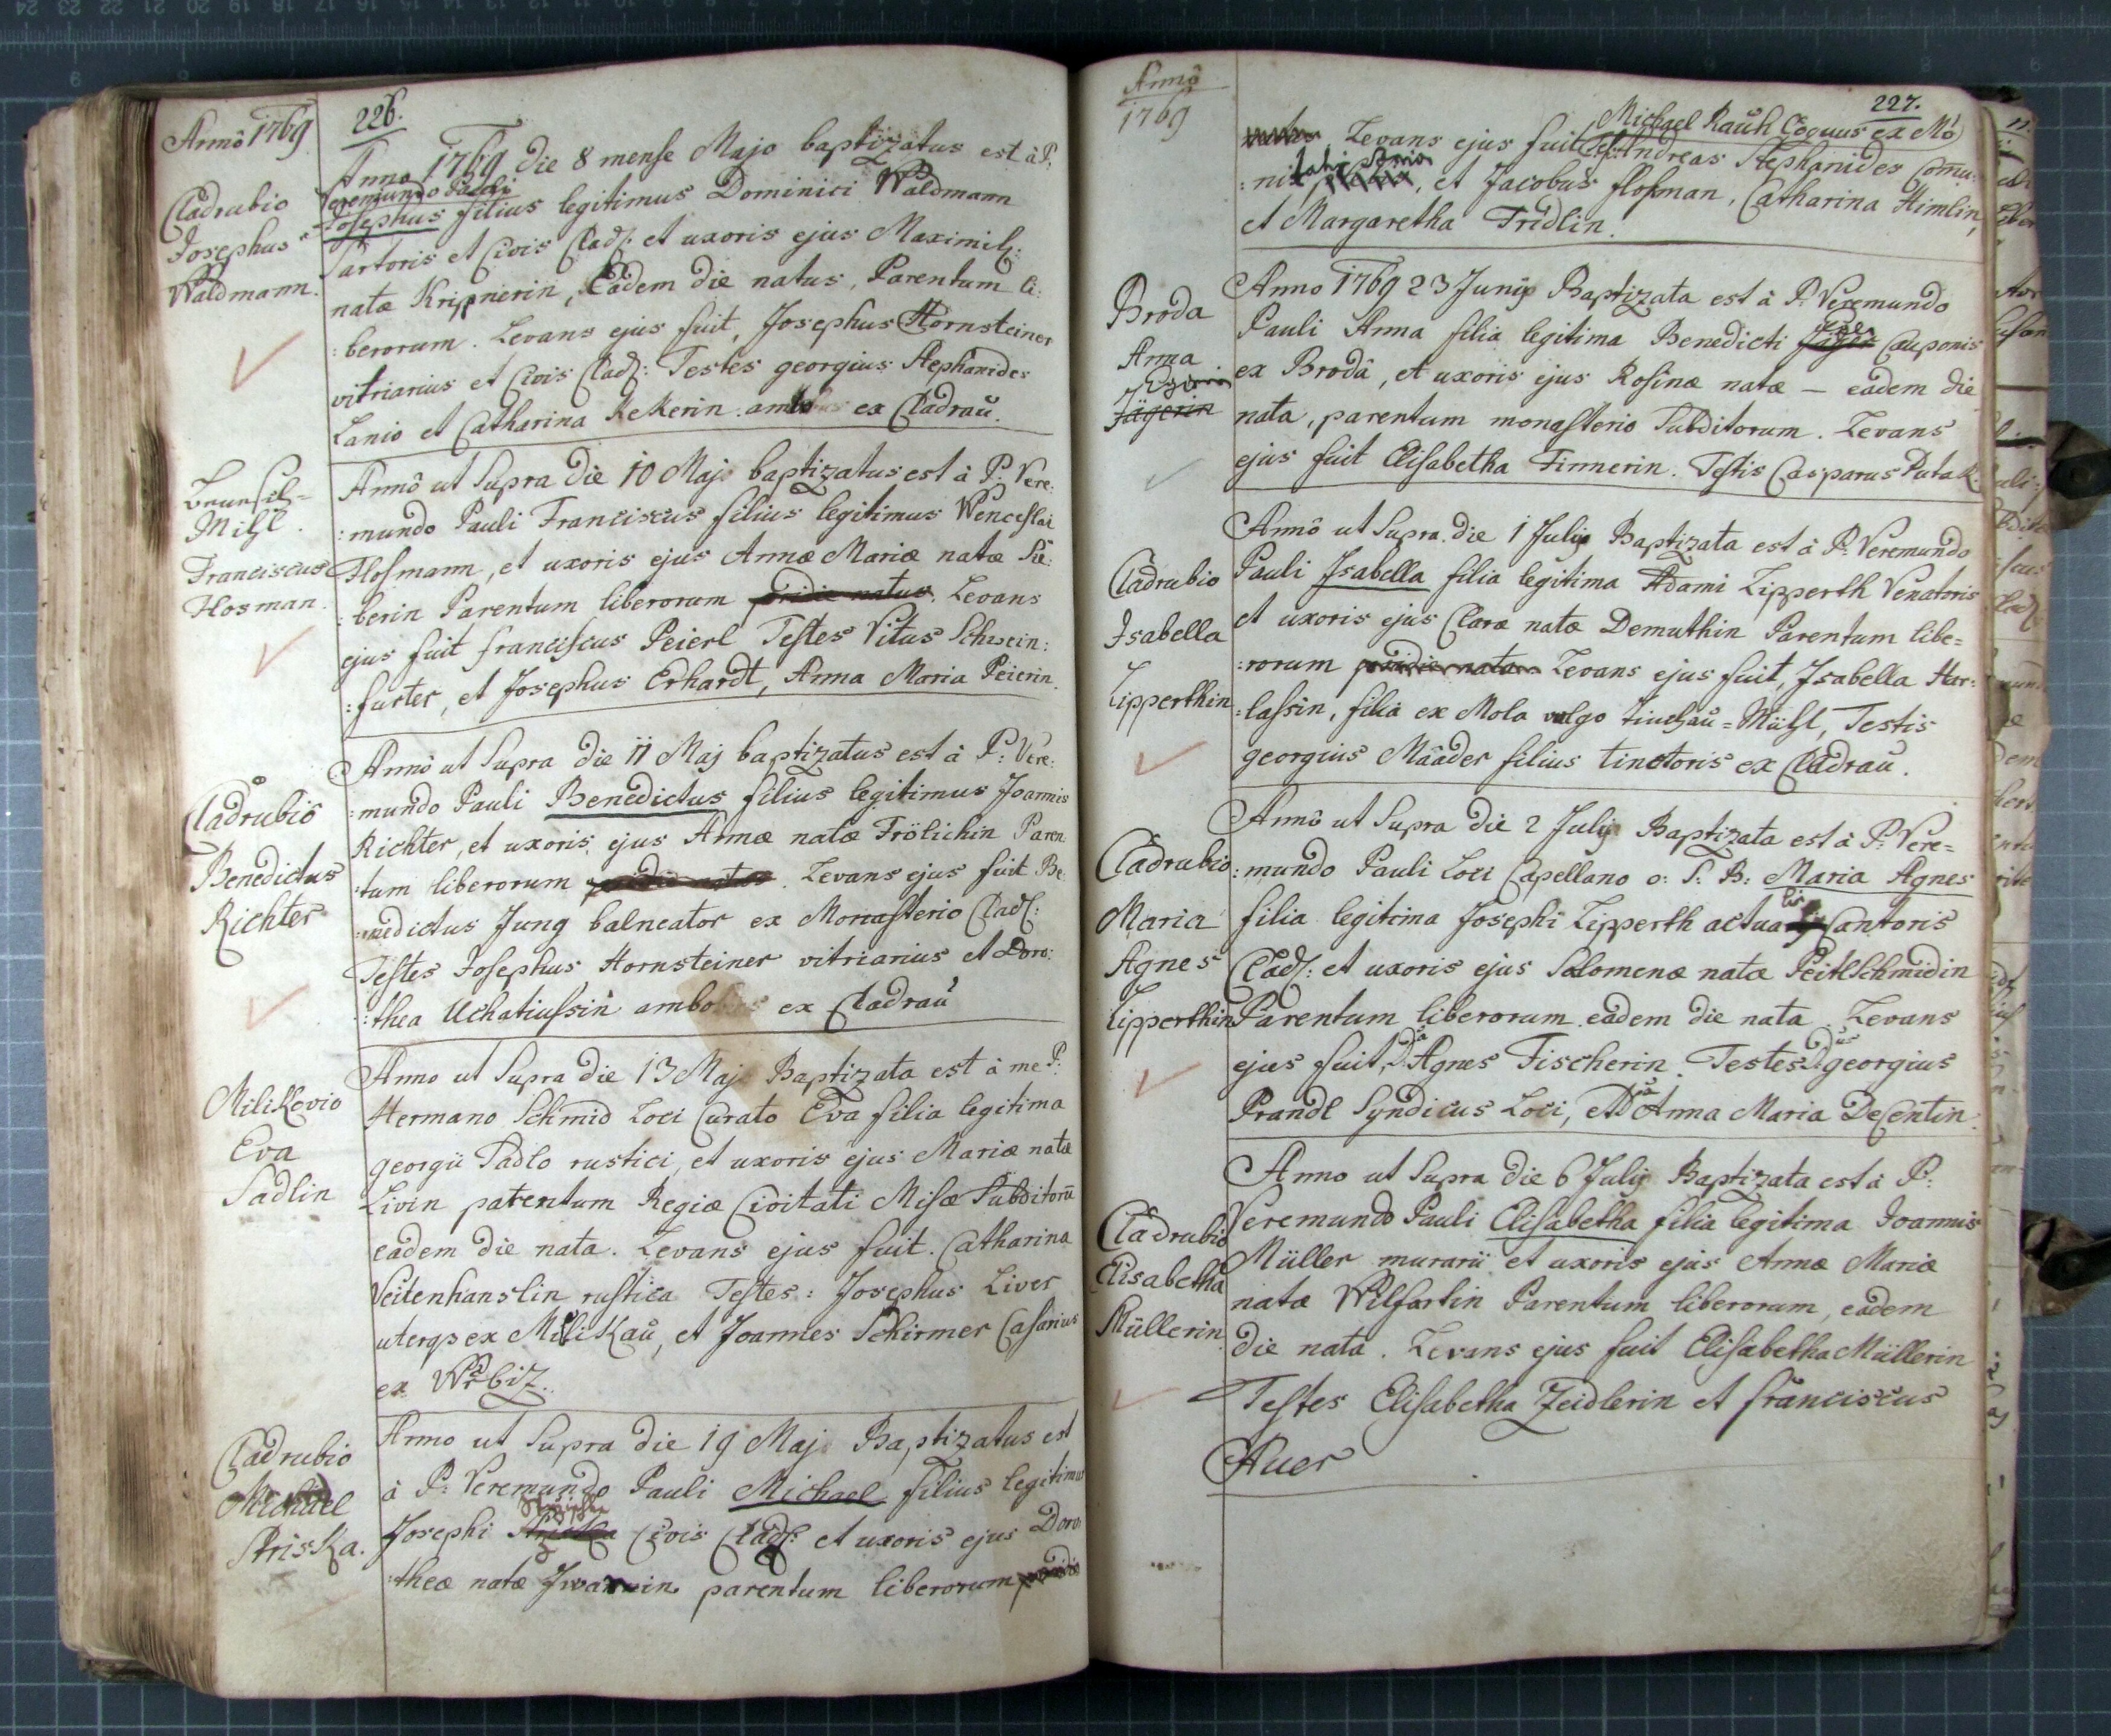 Anno 1769
226.
Anno 1769 die 8 mense Majo baptizatus est à P:
Veremundo Pauli
Cladrubio
Josephus
Waldmann.
Josephus filius legitimus Dominici Waldmann
Sartoris et Civis Clad: et uxoris ejus Maximil:
natæ Kripnerin, Eadem die natus, Parentum li:
:berorum. Levans ejus fuit, Josephus Hornsteiner
vitriarius et Civis Clad: Testes georgius Stephanides
Lanio et Catharina Kekerin ex Cladrau.
Mihl.
Franciscus
Hosman.
Annô ut Supra die 10 Maj baptizatus est à P: Vere:
:mundo Pauli Franciscus filius legitimus Wenceslai
Hosmann, et uxoris ejus Annæ Mariæ natæ Sie:
:berin Parentum liberorum pridie natus. Levans
ejus fuit franciscus Peierl Testes Vitus Schwein:
:furter, et Josephus Erhardt, Anna Maria Peierin.
Cladrubio
Benedictus
Richter
Annô ut Supra die 11 Maj baptizatus est à P: Vere:
:mundo Pauli Benedictus filius legitimus Joannis
Richter, et uxoris ejus Annæ natæ Frölichin Paren
:tum liberorum pridie natus. Levans ejus fuit Be:
:nedictus Jung balneator ex Monasterio Clad:
Testes Josephus Hornsteiner vitriarius et Doro:
:thea Uchatiussin ex Cladrau
Milikovio
Eva
Sadlin
Anno ut Supra die 13 Maj Baptizata est à me P:
Hermano Schmid Loci Curato Eva filia legitima
georgii Sadlo rustici, et uxoris ejus Mariæ natæ
Livin parentum Regiæ Civitati Misæ Subditorū
eadem die nata. Levans ejus fuit Catharina
Veitenhanslin rustica Testes: Josephus Liver
uterqs ex Milikau, et Joannes Schirmer Casarius
ex Wrbiz.
Cladrubio
Michael
Striska.
Anno ut Supra die 19 Maj Baptizatus est
à P: Veremundo Pauli Michael filius legitimus
Josephi Civis Clad: et uxoris ejus Doro
:theæ natæ parentum liberorum pridie
Annô
1769
227.
Michael Rauh Coquus ex Mo
natus Levans ejus fuit Andreas Stephanides Comu:
:ni et Jacobus Hosman, Catharina Himlin,
et Margaretha Fridlin.
Broda
Anna
Jägerin
Anno 1769 23 Junij Baptizata est à P: Veremundo
Pauli Anna filia legitima Benedicti Cauponis
ex Brodâ, et uxoris ejus Rosinæ natæ — eadem die
nata, parentum monasterio Subditorum. Levans
ejus fuit Elisabetha Finnerin. Testis Casparus Putak.
Cladrubio
Isabella
Lipperthin
Annô ut Supra die 1 Julij Baptizata est à P: Veremundo
Pauli Isabella filia legitima Adami Lipperth Venatoris
et uxoris ejus Claræ natæ Demuthin Parentum libe=
:rorum pridie nata Levans ejus fuit, Isabella Har:
:lassin, filia ex Mola vulgo Mühl, Testis
georgius Mâader filius tinctoris ex Cladrau.
Cladrubio
Maria
Agnes
Lipperthin
Annô ut Supra die 2 Julij Baptizata est à P: Vere=
:mundo Pauli Loci Capellano o: S: B: Maria Agnes
filia legitima Josephi Lipperth actuarij Cantoris
Clad: et uxoris ejus Salomenæ natæ Peitlschmidin
Parentum liberorum eadem die nata. Levans
ejus fuit, Dª Agnes Fischerin. Testes Dus georgius
Prandl Syndicus Loci, et Dª Anna Maria DeCentin.
Cladrubio
Elisabetha
Müllerin
Anno ut Supra die 6 Julij Baptizata est à P:
Veremundo Pauli Elisabetha filia legitima Joannis
Müller murarii et uxoris ejus Annæ Mariæ
natæ Wilfartin Parentum liberorum, eadem
die nata. Levans ejus fuit Elisabetha Müllerin
Testes Elisabetha Zeidlerin et franciscus
Auer